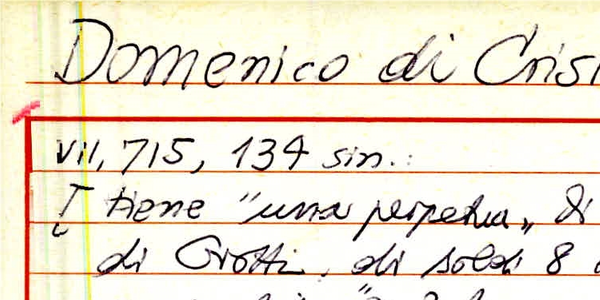 Domenico di Crisi
VII, 715, 134 sin.:
tiene "una perpetua„ di
di Grotti, di soldi 8